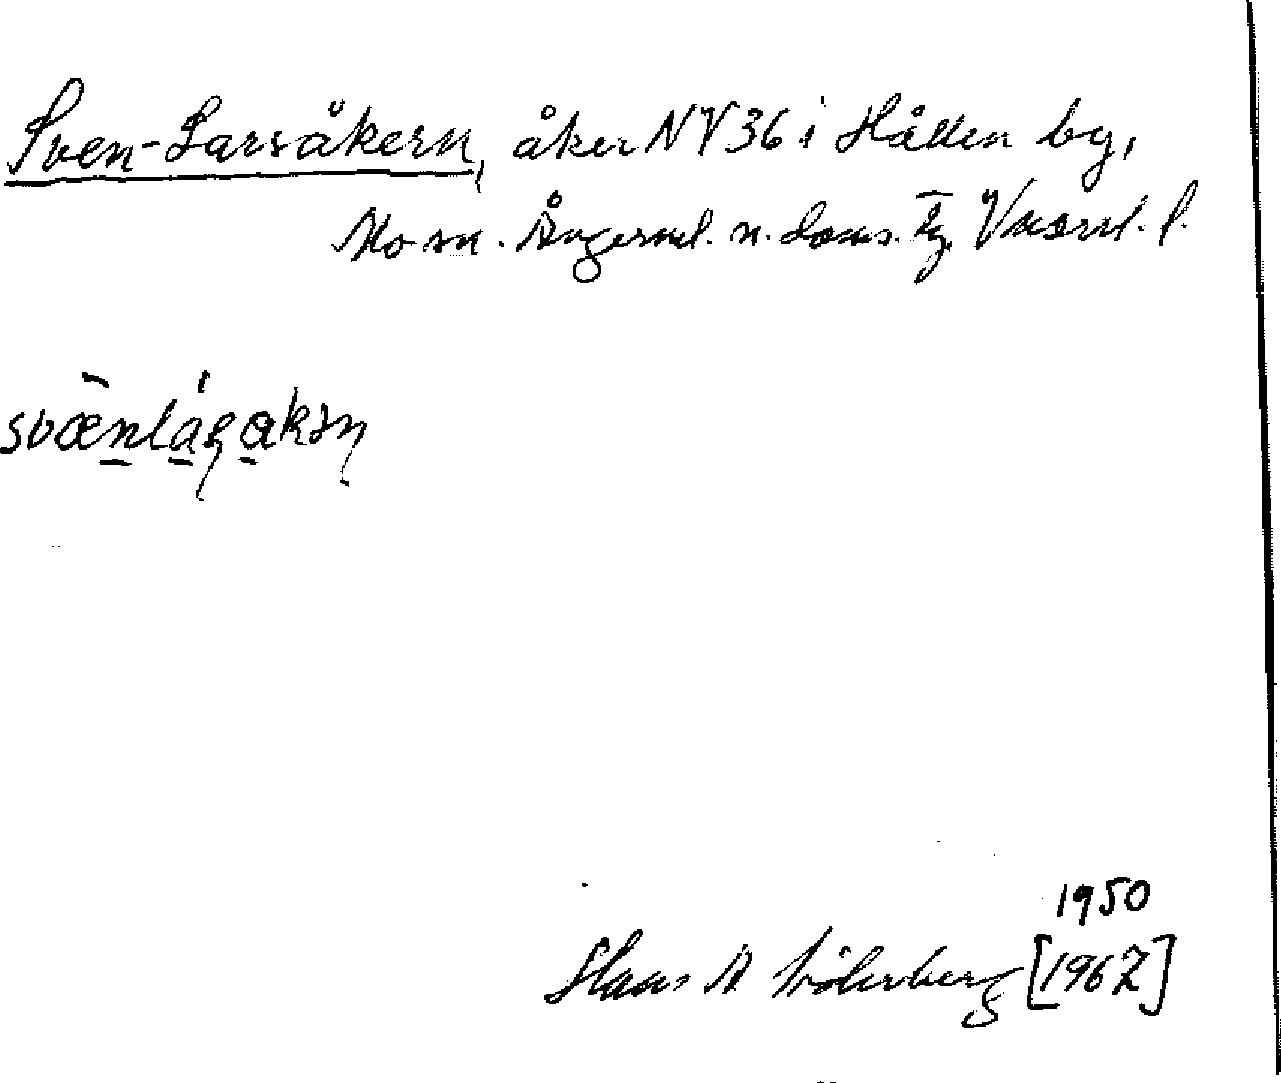 Sven-Larsåkern, åker NV 36 i Hållen by,
Mo sn. Ångerml. n. doms. tg. Vnorrl. l.
svænlaʂakən
1950
Hans A Söderberg [1967]